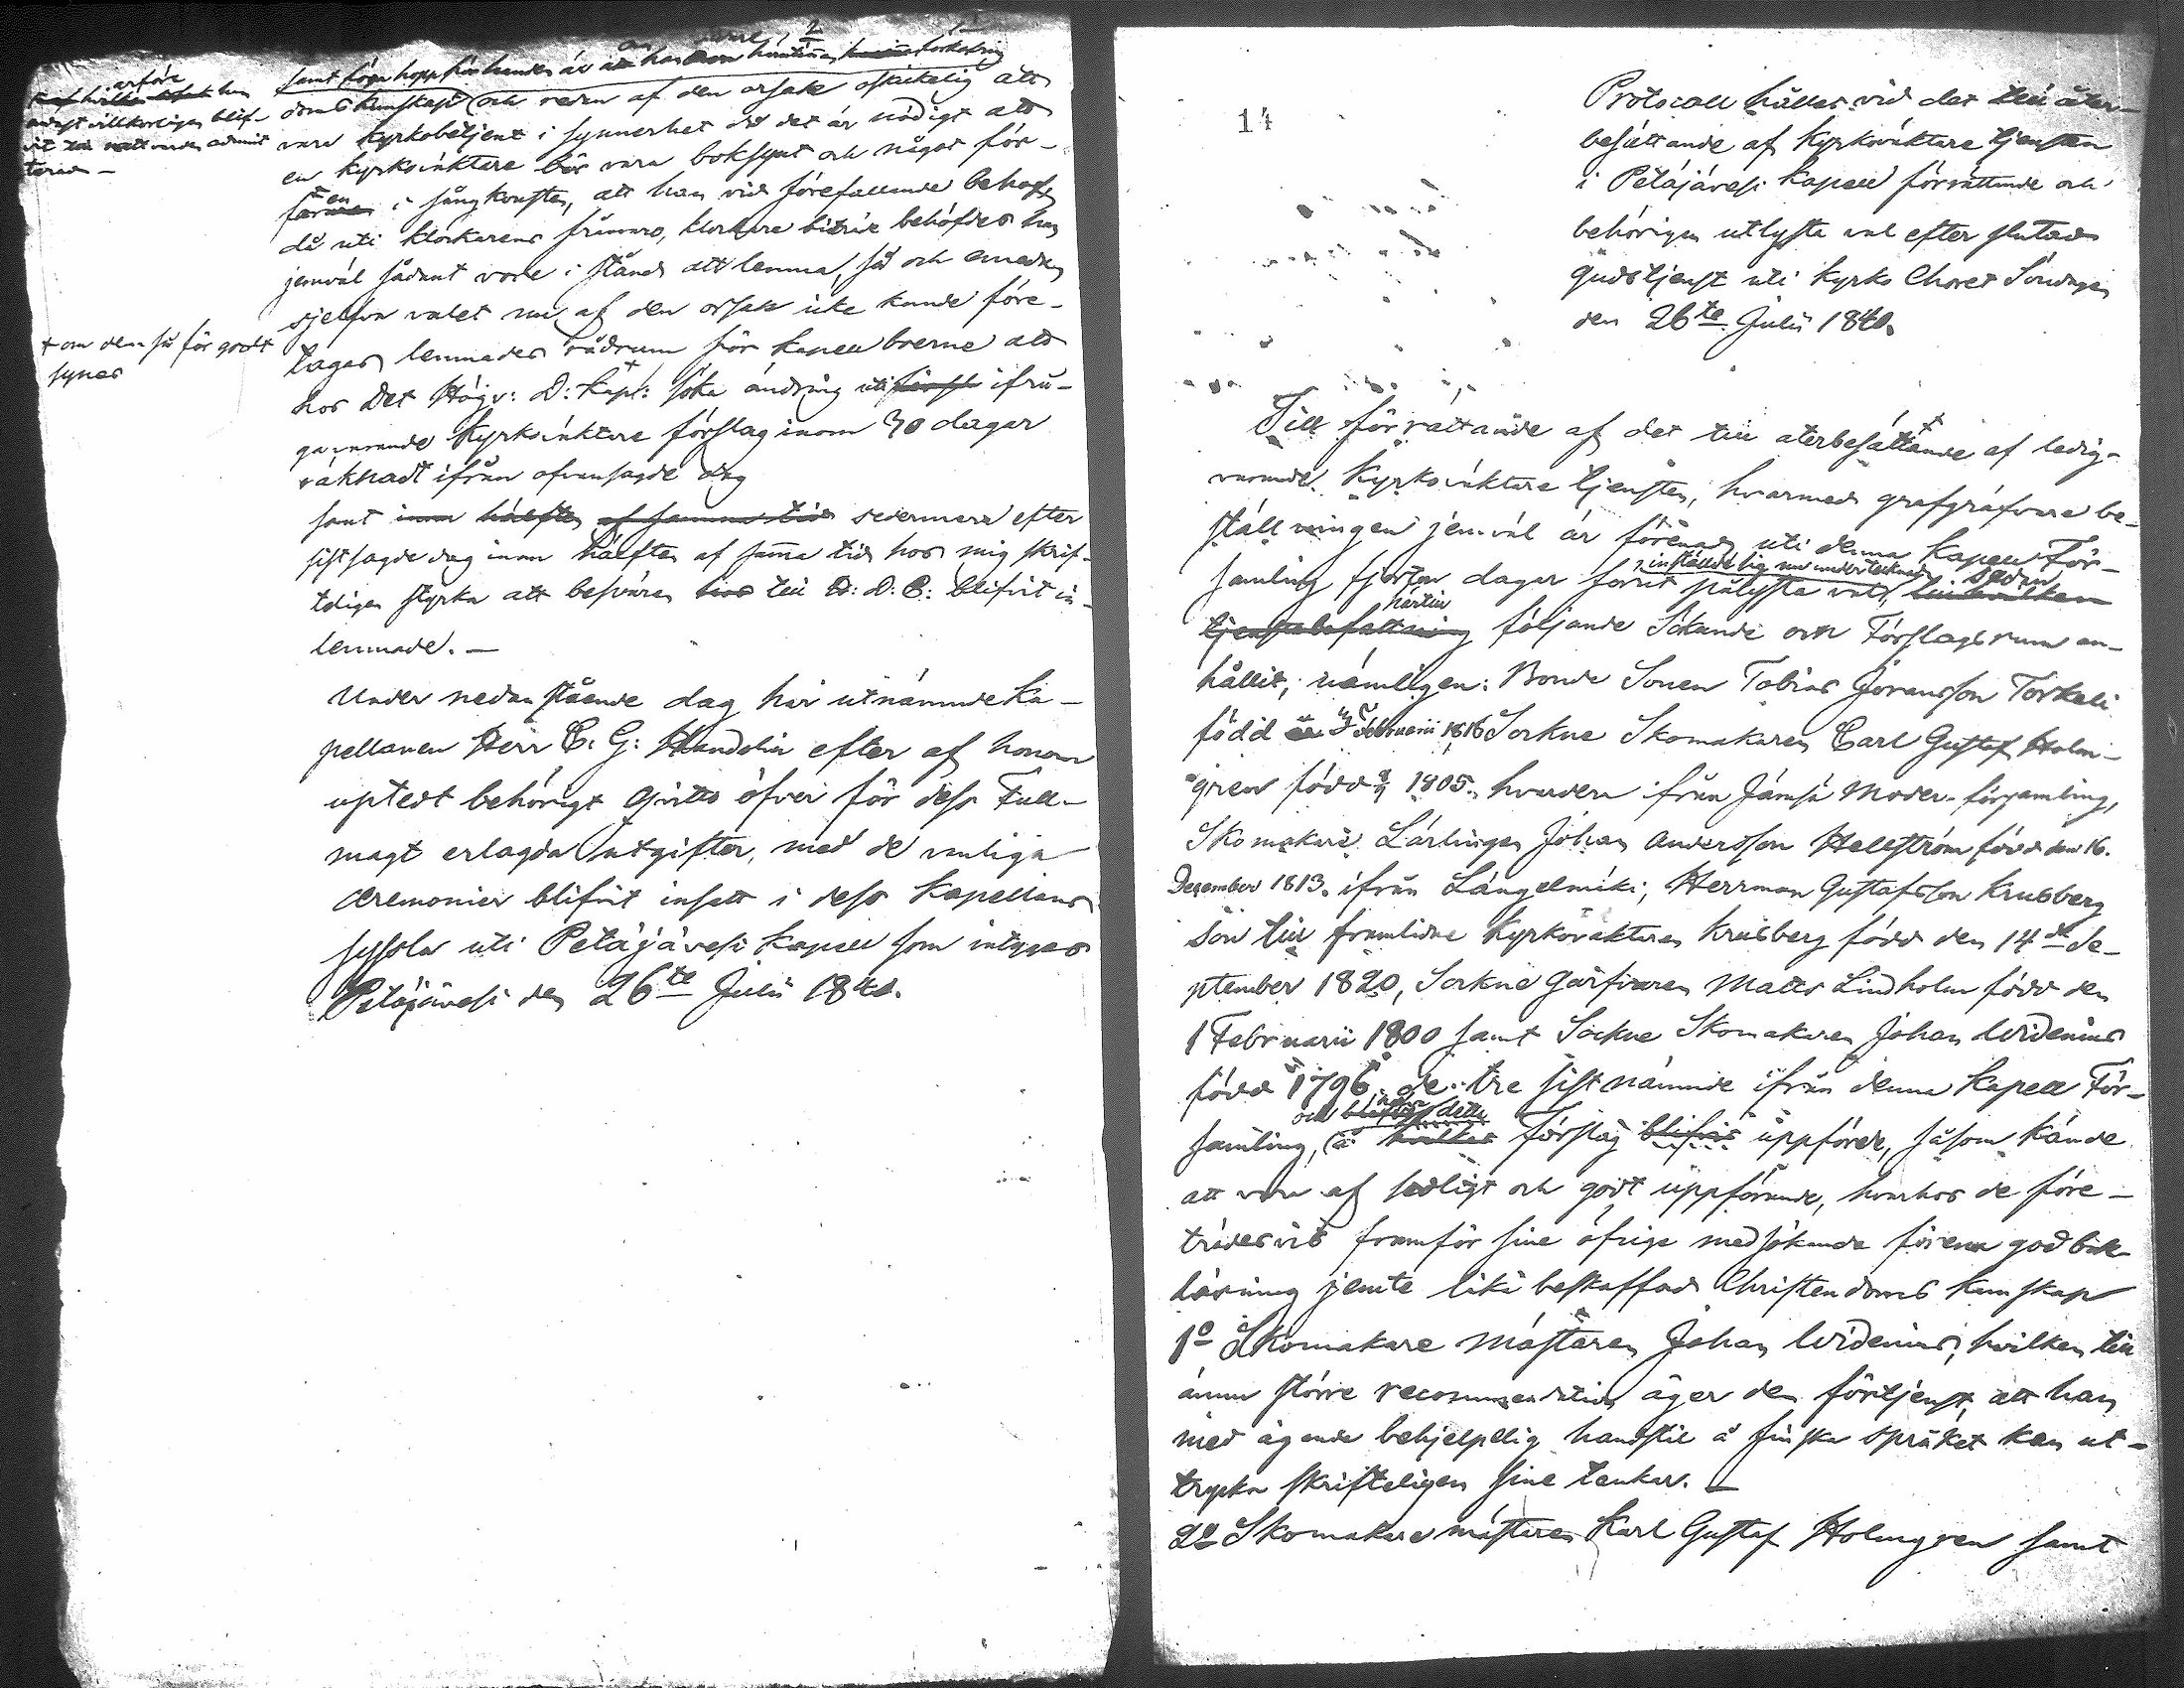 samt föga hopp hos honom är att han kan hinna förkofring
doms kunskap och redan af den orsak oskickelig att
vara kyrkobetjent i synnerhet då det är nödigt att
en kyrkováktare bör vara boksynt och något för-
faren i sångkonsten, att han vid förefallande behof
då uti klockarens frånvaro, klockare biträde behöfdes han
jemväl sådant vore i stånd att lemna, så och emedan
sjelfva valet nu af den orsak icke kunde före-
tagas lemnades rådrum för Kapell boerne att
hos Det Högv: D: Kapt: söka ändring uti ifrå-
gavarande Kyrkováktare förslag inom 30 dagar
räknadt ifrån ofvansagde dag
samt inom hälften af samma tid sedermera efter
sistsagde dag inom hälften af samma tid hos mig skrif-
teligen styrka att besvären till D: C: blifvit in-
lemnade. —
arföre
han
endast villkorligen blif-
vit admit
terad —
+ om dem så för godt
synes
Under nedanstående dag har utnämnde Ka-
pellanen Herr C. G: Handelin efter af honom
uptedt behörigt Qvitto öfver för dess Full-
magt erlagda utgifter, med de vanliga
Ceremonier blifvit insatt i dess Kapellans
syssla uti Petäjävesi Kapell som intygas
Petäjävesi den 26te Julii 1840.
14
Protocoll hållet vid det till åter-
besättande af Kyrkováktare tjensten
i Petäjävesi Kapell förrättande och
behörigen utlysta val efter slutad
gudstjenst uti Kyrko Choret Söndagen
den 26te Julii 1840.
Till förrättande af det till återbesättande af ledig-
varande Kyrkováktare tjensten, hvarmed grafgräfvare be-
ställningen jemväl är förenad uti denna Kapell För-
samling fjorton dagar förut pålysta val, inställde sig undertecknad sedan
tjenstebefattning härtill följande Sökande om Förslagsrum an-
hållit, nämligen: Bonde Sonen Tobias Göransson Torkeli
född Februarii 1816 Sockne Skomakaren Carl Gustaf Holm-
gren född 1805. hvardera ifrån Jämsä Moder-församling,
Skomakare Lärlingen Johan Andersson Hellström född den 16.
December 1813. ifrån Längelmäki, Herrman Gustafsson Krusberg
son till framlidne Kyrkováktaren Krusberg född den 14de Se-
ptember 1820, Sockne Garfvaren Matts Lindholm född den
1 Februarii 1800 samt Sockne Skomakaren Johan Widenius
född 1796. de tre sistnämnde ifrån denna Kapell För-
samling, och detta å hvilket Förslag blifvit uppförde, såsom kände
att vara af sedligt och godt uppförande, hvarhos de före-
trädesvis framför sine öfrige medsökande förena god bok-
läsning jemte lika beskaffad Christendoms kunskap
1o Skomakare mästaren Johan Widenius, hvilken till
ännu större recommendation äger den förtjenst, att han
med ägande behjelpelig handstil å finska språket kan ut-
trycka skrifteligen sine tankar. —
2o Skomakare mästaren Karl Gustaf Holmgren samt